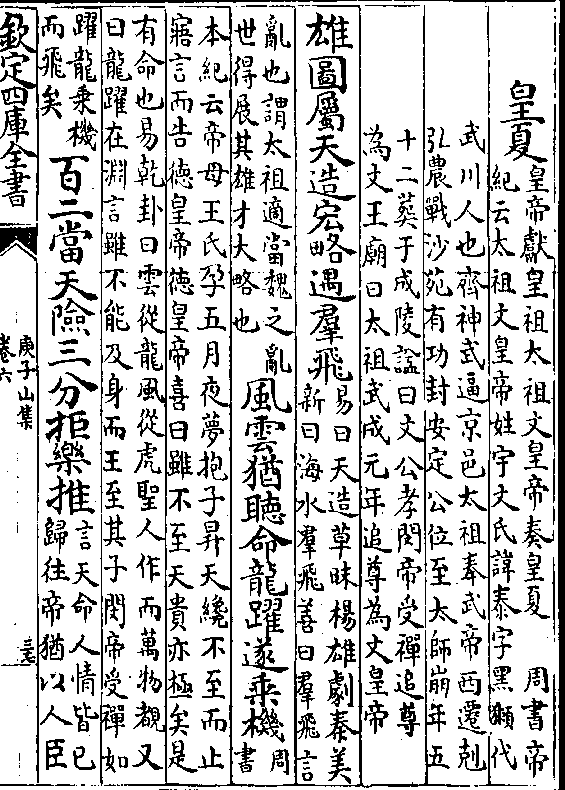 皇夏
皇帝獻皇祖太祖文皇帝奏皇夏 周書帝
紀云太祖文皇帝姓宇文氏諱泰字黑獺代
武川人也齊神武逼京邑太祖奉武帝西遷剋
弘農戰沙苑有功封安定公位至太師崩年五
十二葬于成陵諡曰文公孝閔帝受禪追尊
為文王廟曰太祖武成元年追尊為文皇帝
雄圖屬天造宏略遇羣飛
易曰天造草昧楊雄劇秦美
新曰海水羣飛善曰羣飛言
亂也謂太祖適當魏之亂
世得展其雄才大略也
風雲猶聽命龍躍遂乘機
周
書
本紀云帝母王氏孕五月夜夢抱子昇天纔不至而止
寤言而告德皇帝德皇帝喜曰雖不至天貴亦極矣是
有命也易乾卦曰雲從龍風從虎聖人作而萬物覩又
曰龍躍在淵言雖不能及身而王至其子閔帝受禪如
躍龍乘機
而飛矣
百二當天險三分拒樂推
言天命人情皆已
歸往帝猶以人臣
欽定四庫全書
庚子山集
卷六
三七